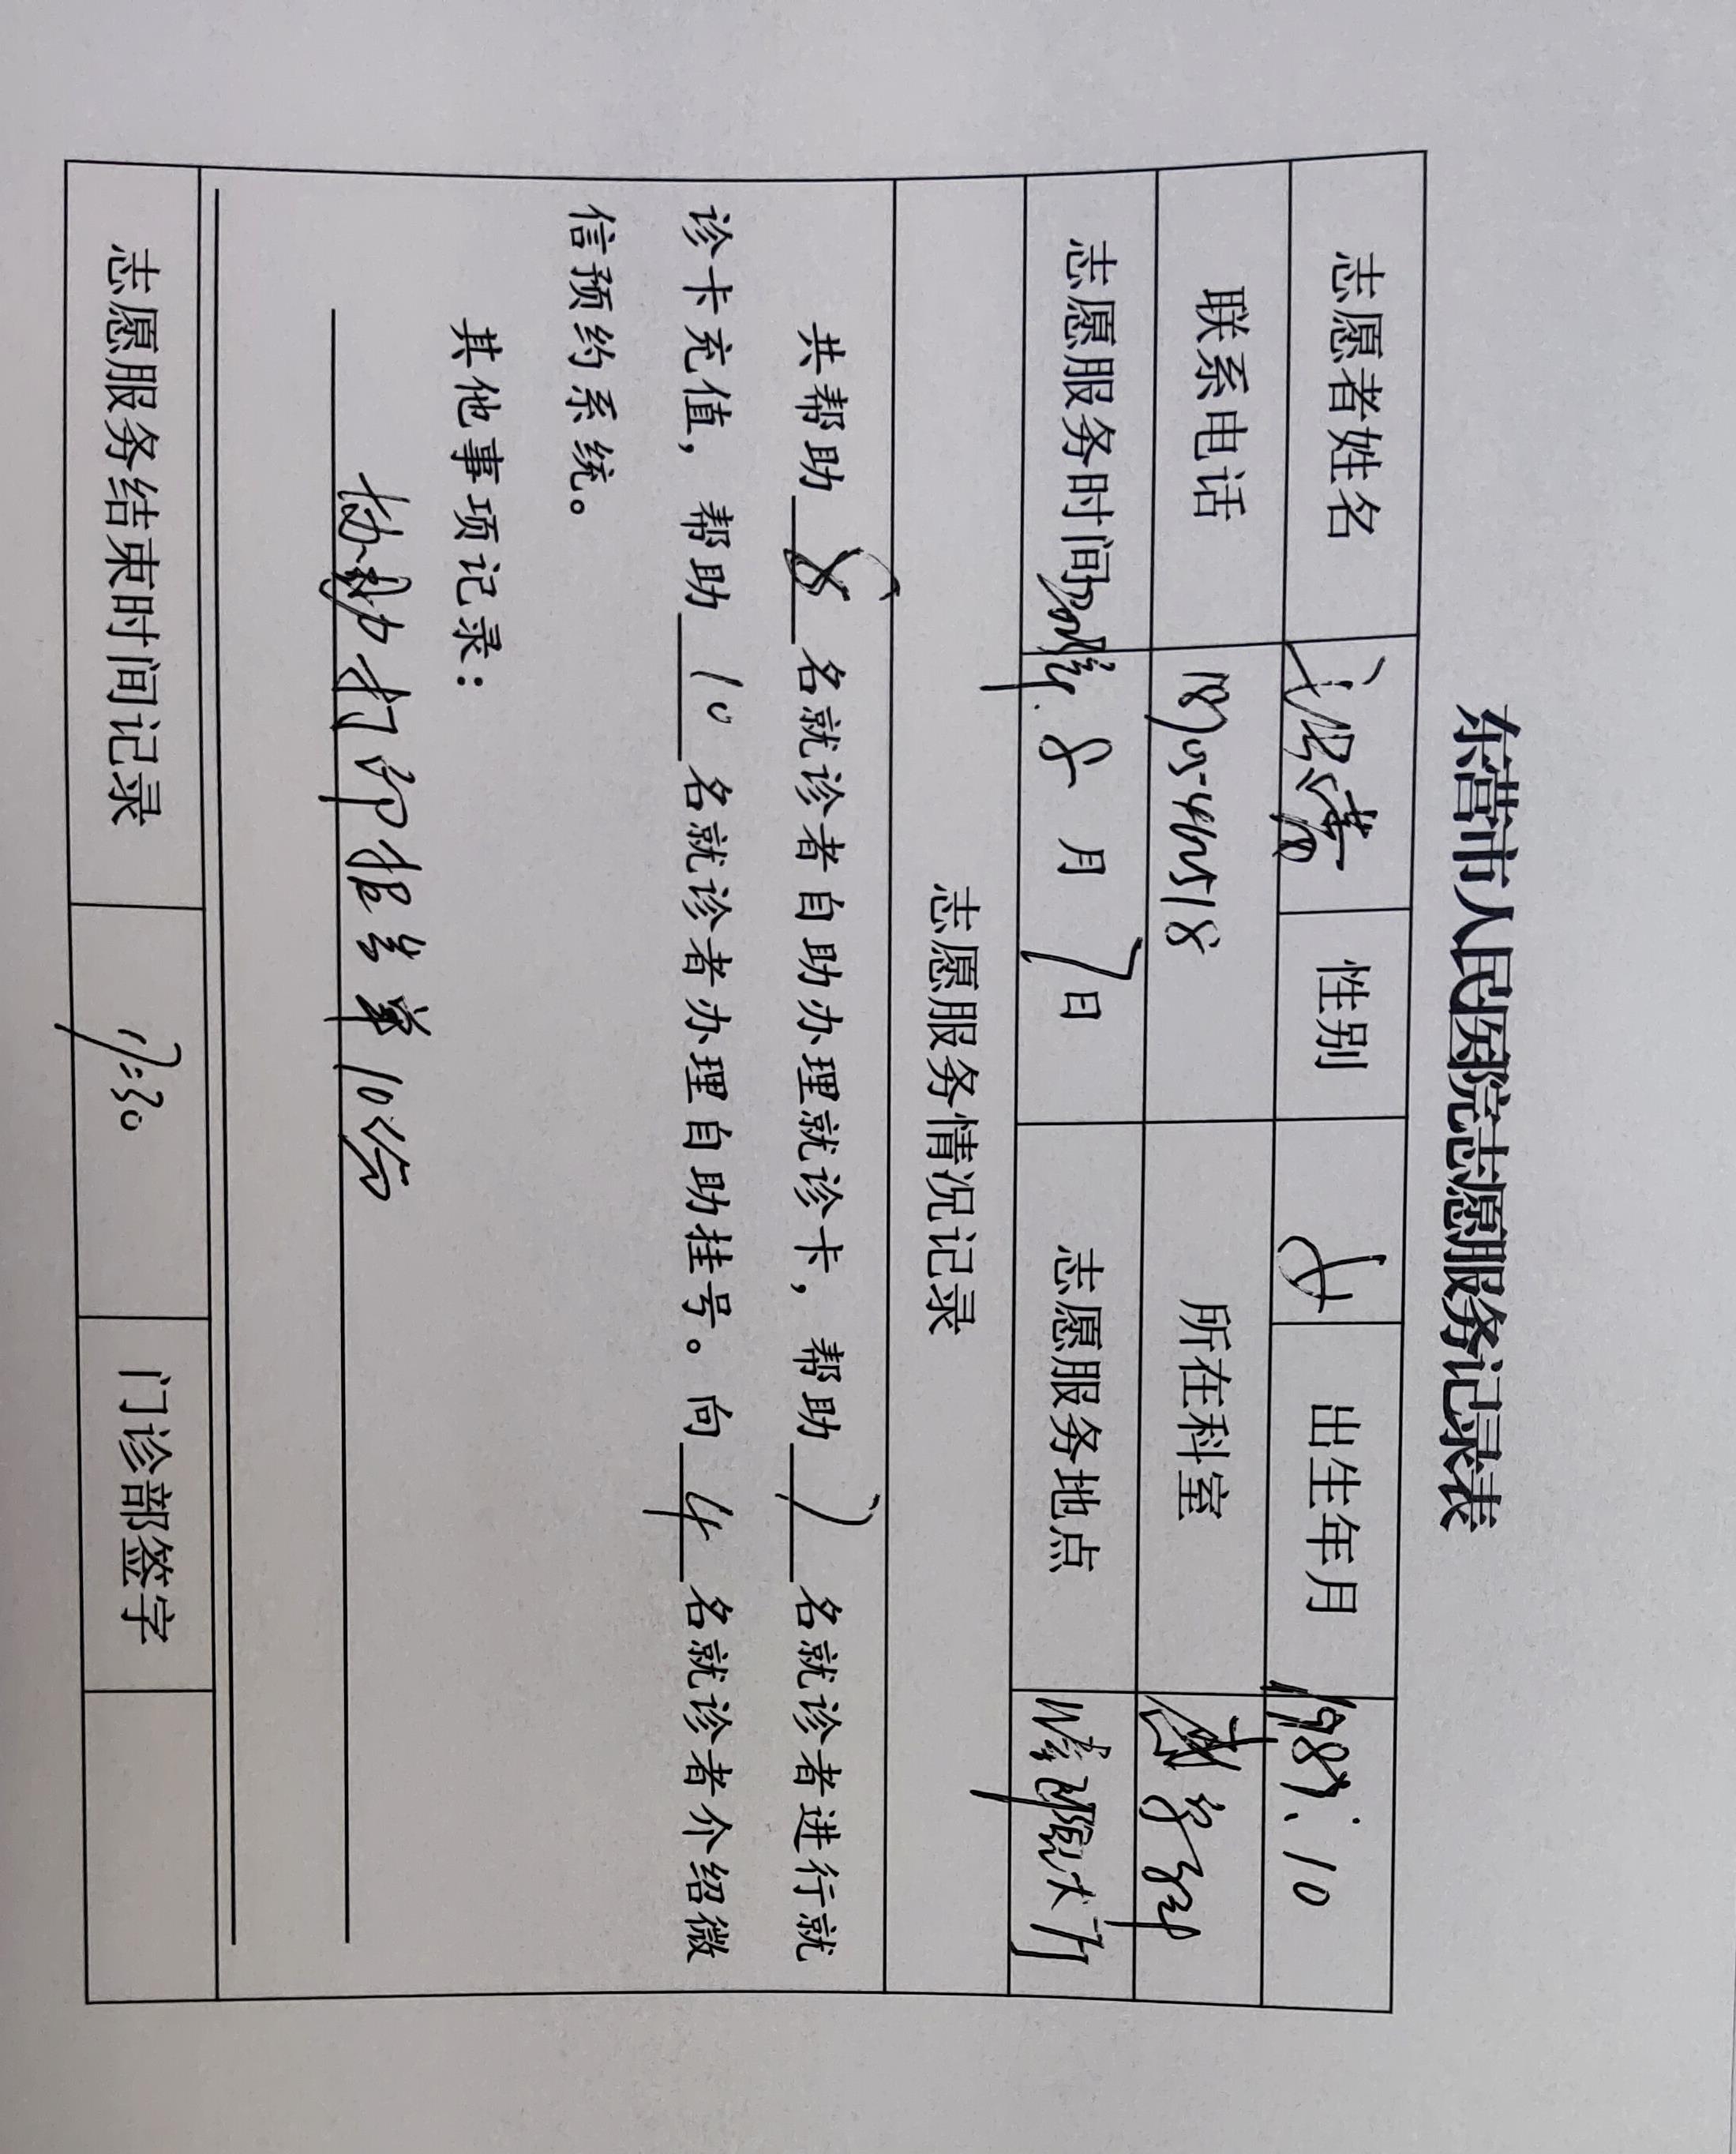 东营市人民医院志愿服务记录表
志愿者姓名 性别 女 出生年月 1987.10
联系电话 所在科室
志愿服务时间 年 8 月 7 日 志愿服务地点 大厅
志愿服务情况记录
共帮助 8 名就诊者自助办理就诊卡，帮助 7 名就诊者进行就
诊卡充值，帮助 10 名就诊者办理自助挂号。向 4 名就诊者介绍微
信预约系统。
其他事项记录：
协助打印报告单10份
志愿服务结束时间记录 17:30 门诊部签字